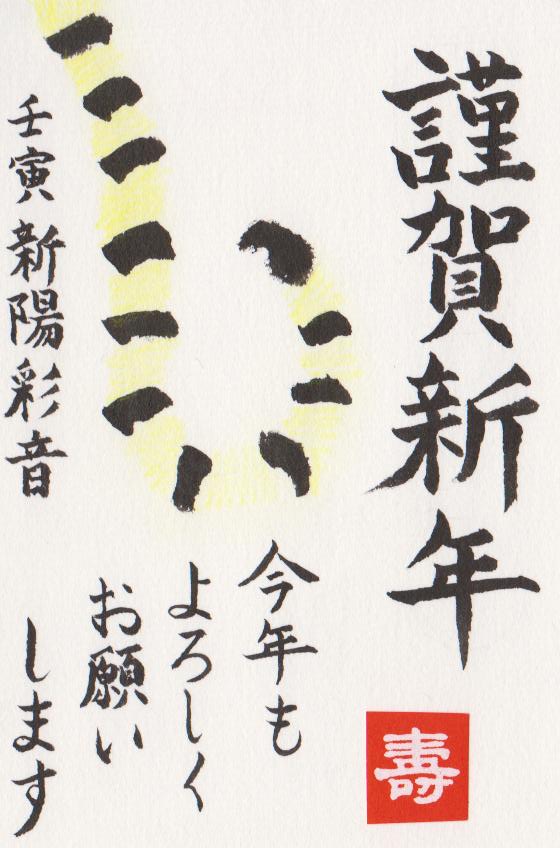 謹賀新年
壽
今年も
よろしく
お願い
します
壬寅 新陽彩音